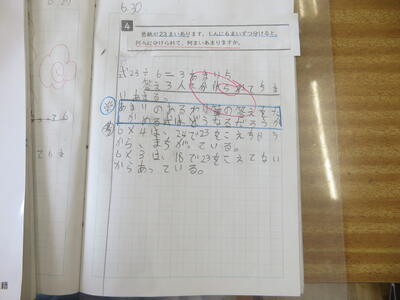 6.30
4
色紙が23まいあります。1人に6まいずつ分けると、
何人に分けられて、何まいあまりますか。
式23÷6=3あまり5
答え3人に分けられて5ま
いあまる。
あまりのあるわり算の答えをた
しかめる
6×4は、24で23をこえちゃう
から、まちがっている。
6×3は、18で23をこえてない
からあっている。